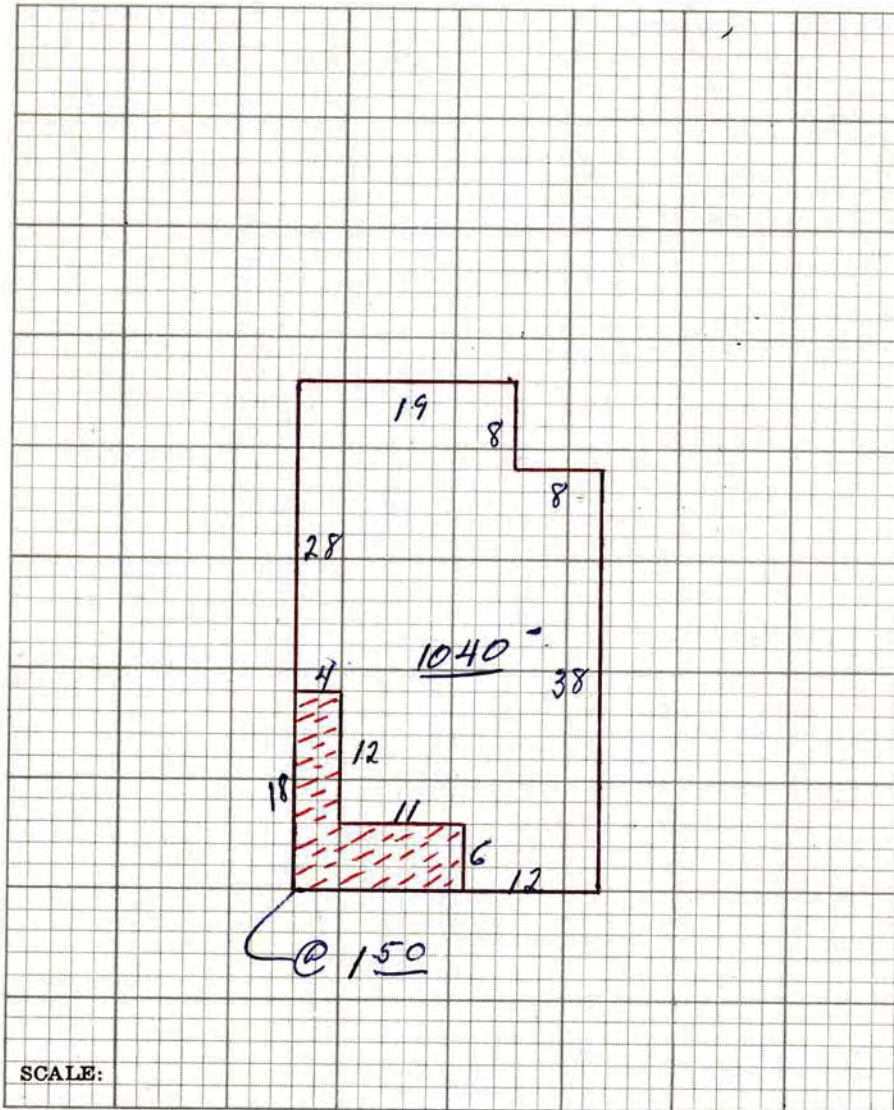 19
8
8
28
1040
4
38
12
18
11
6
12
@ 1 50
SCALE: